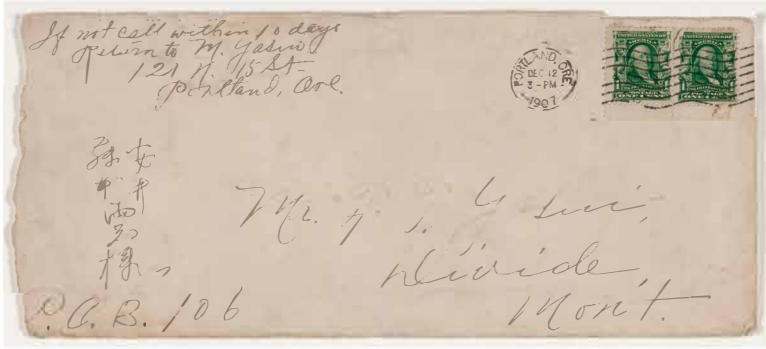 If not call within 10 days
Return to M. Yasui
121 N. 15 St-
Portland, Ore.
PORTLAND, ORE.
DEC 12
3-PM
1907
安井
様
Mr. Yasui,
Divide,
Mont.
C. B. 106